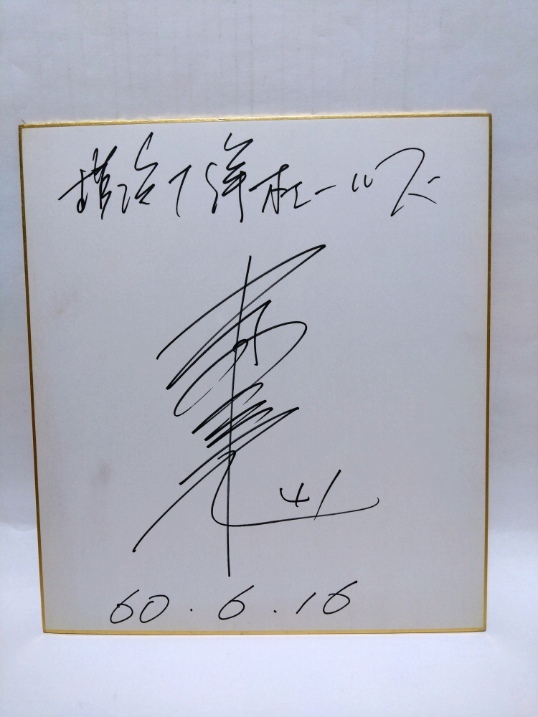 横浜大洋ホエールズ
41
60.6.16